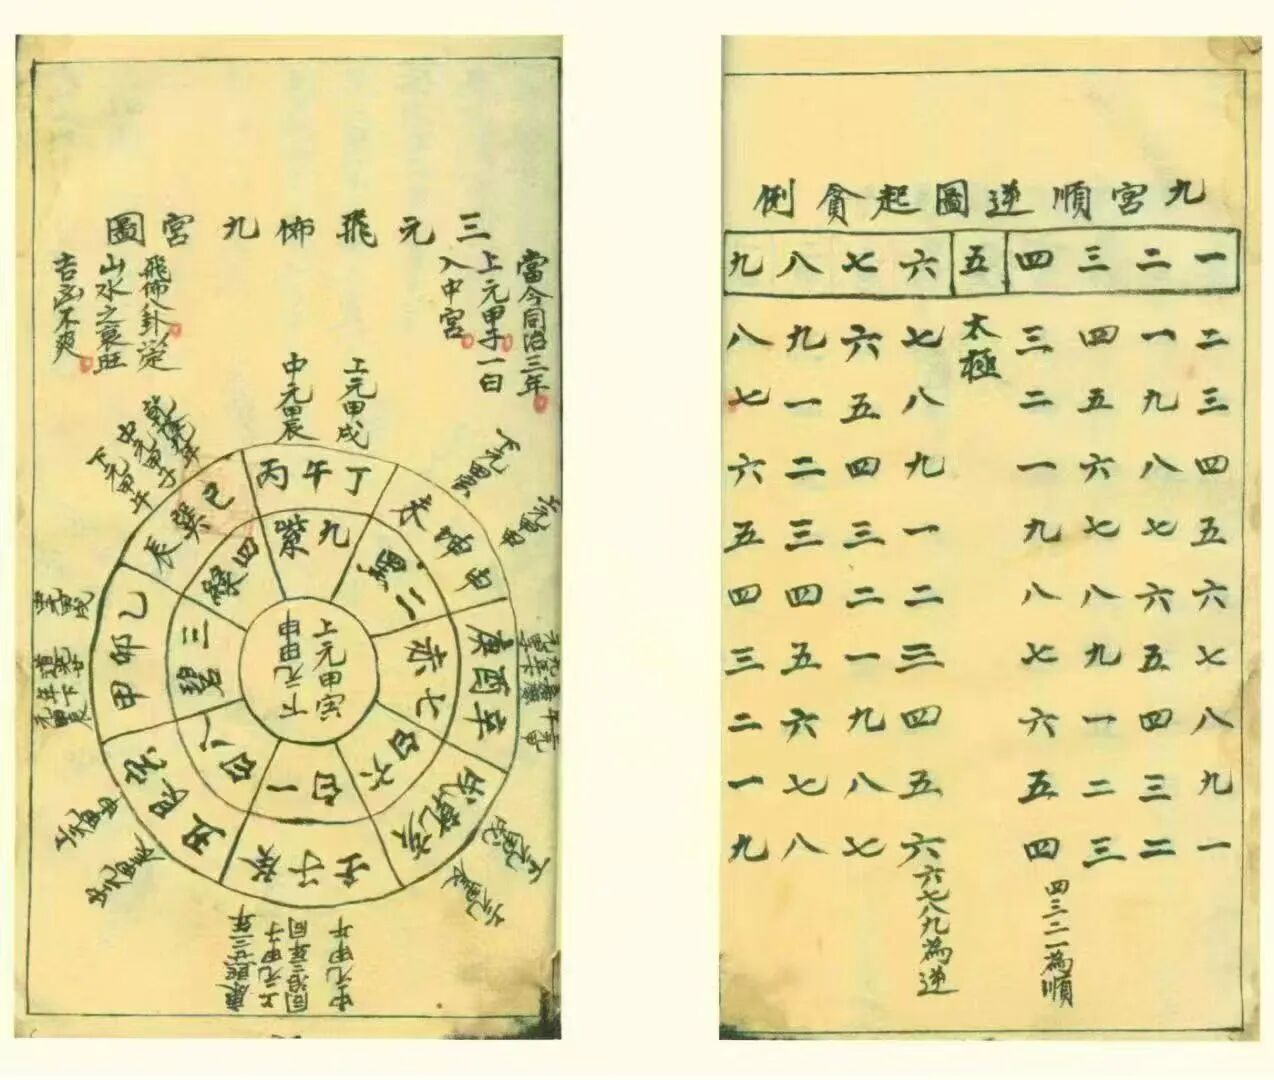 九宮順逆圖起貪例
一二三四五六七八九一
二一九八七六五四三二
三四五六七八九一二三
四三二一九八七六五四
四三二一為順
五太極
六七八九一二三四五六
六七八九為逆
七六五四三二一九八七
八九一二三四五六七八
九八七六五四三二一九
三元飛佈九宮圖
當今同治三年
上元甲子一白
入中宮
飛佈八卦定
山水之衰旺
吉凶不爽
上元甲戌
中元甲辰
丁午丙
九紫
未坤申
二黑
庚酉辛
七赤
戌乾亥
六白
壬子癸
一白
丑艮寅
八白
甲卯乙
三碧
辰巽巳
四綠
上元甲寅
下元甲申
中元甲子
下元甲午
中元甲午
同治三年同
上元甲子
康熙廿三年